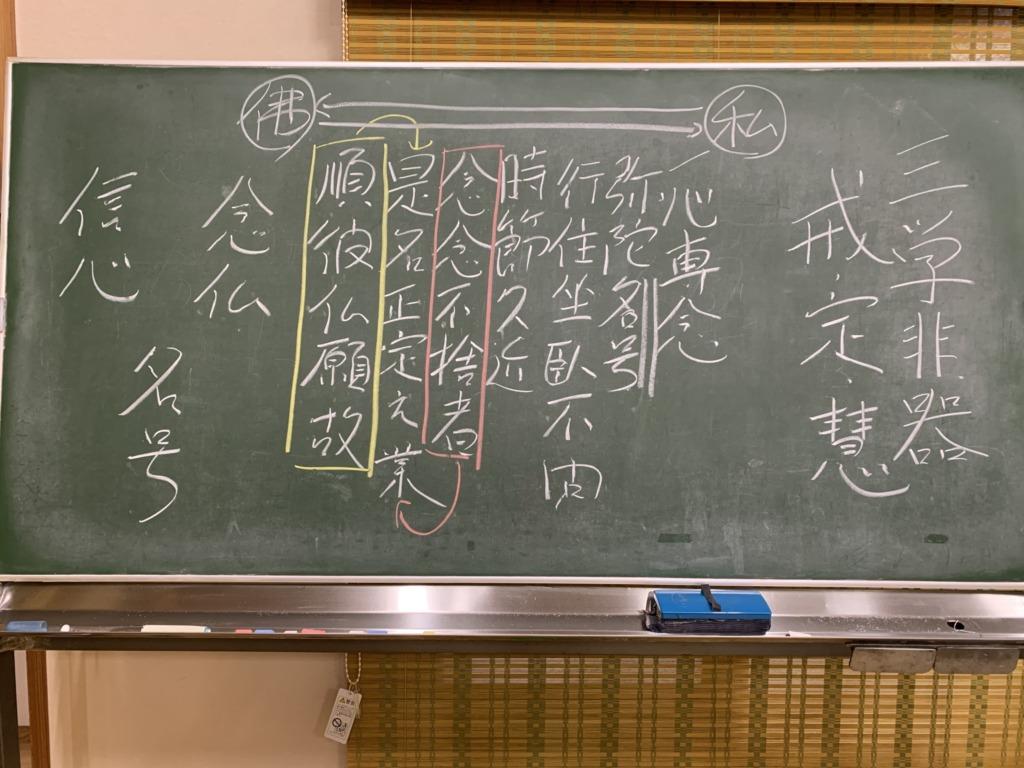 三学非器
戒・定・慧
私
佛
一心専念
弥陀名号
行住坐臥不问
時節久近
念念不捨者
是名正定之業
順彼仏願故
念仏
名号
信心